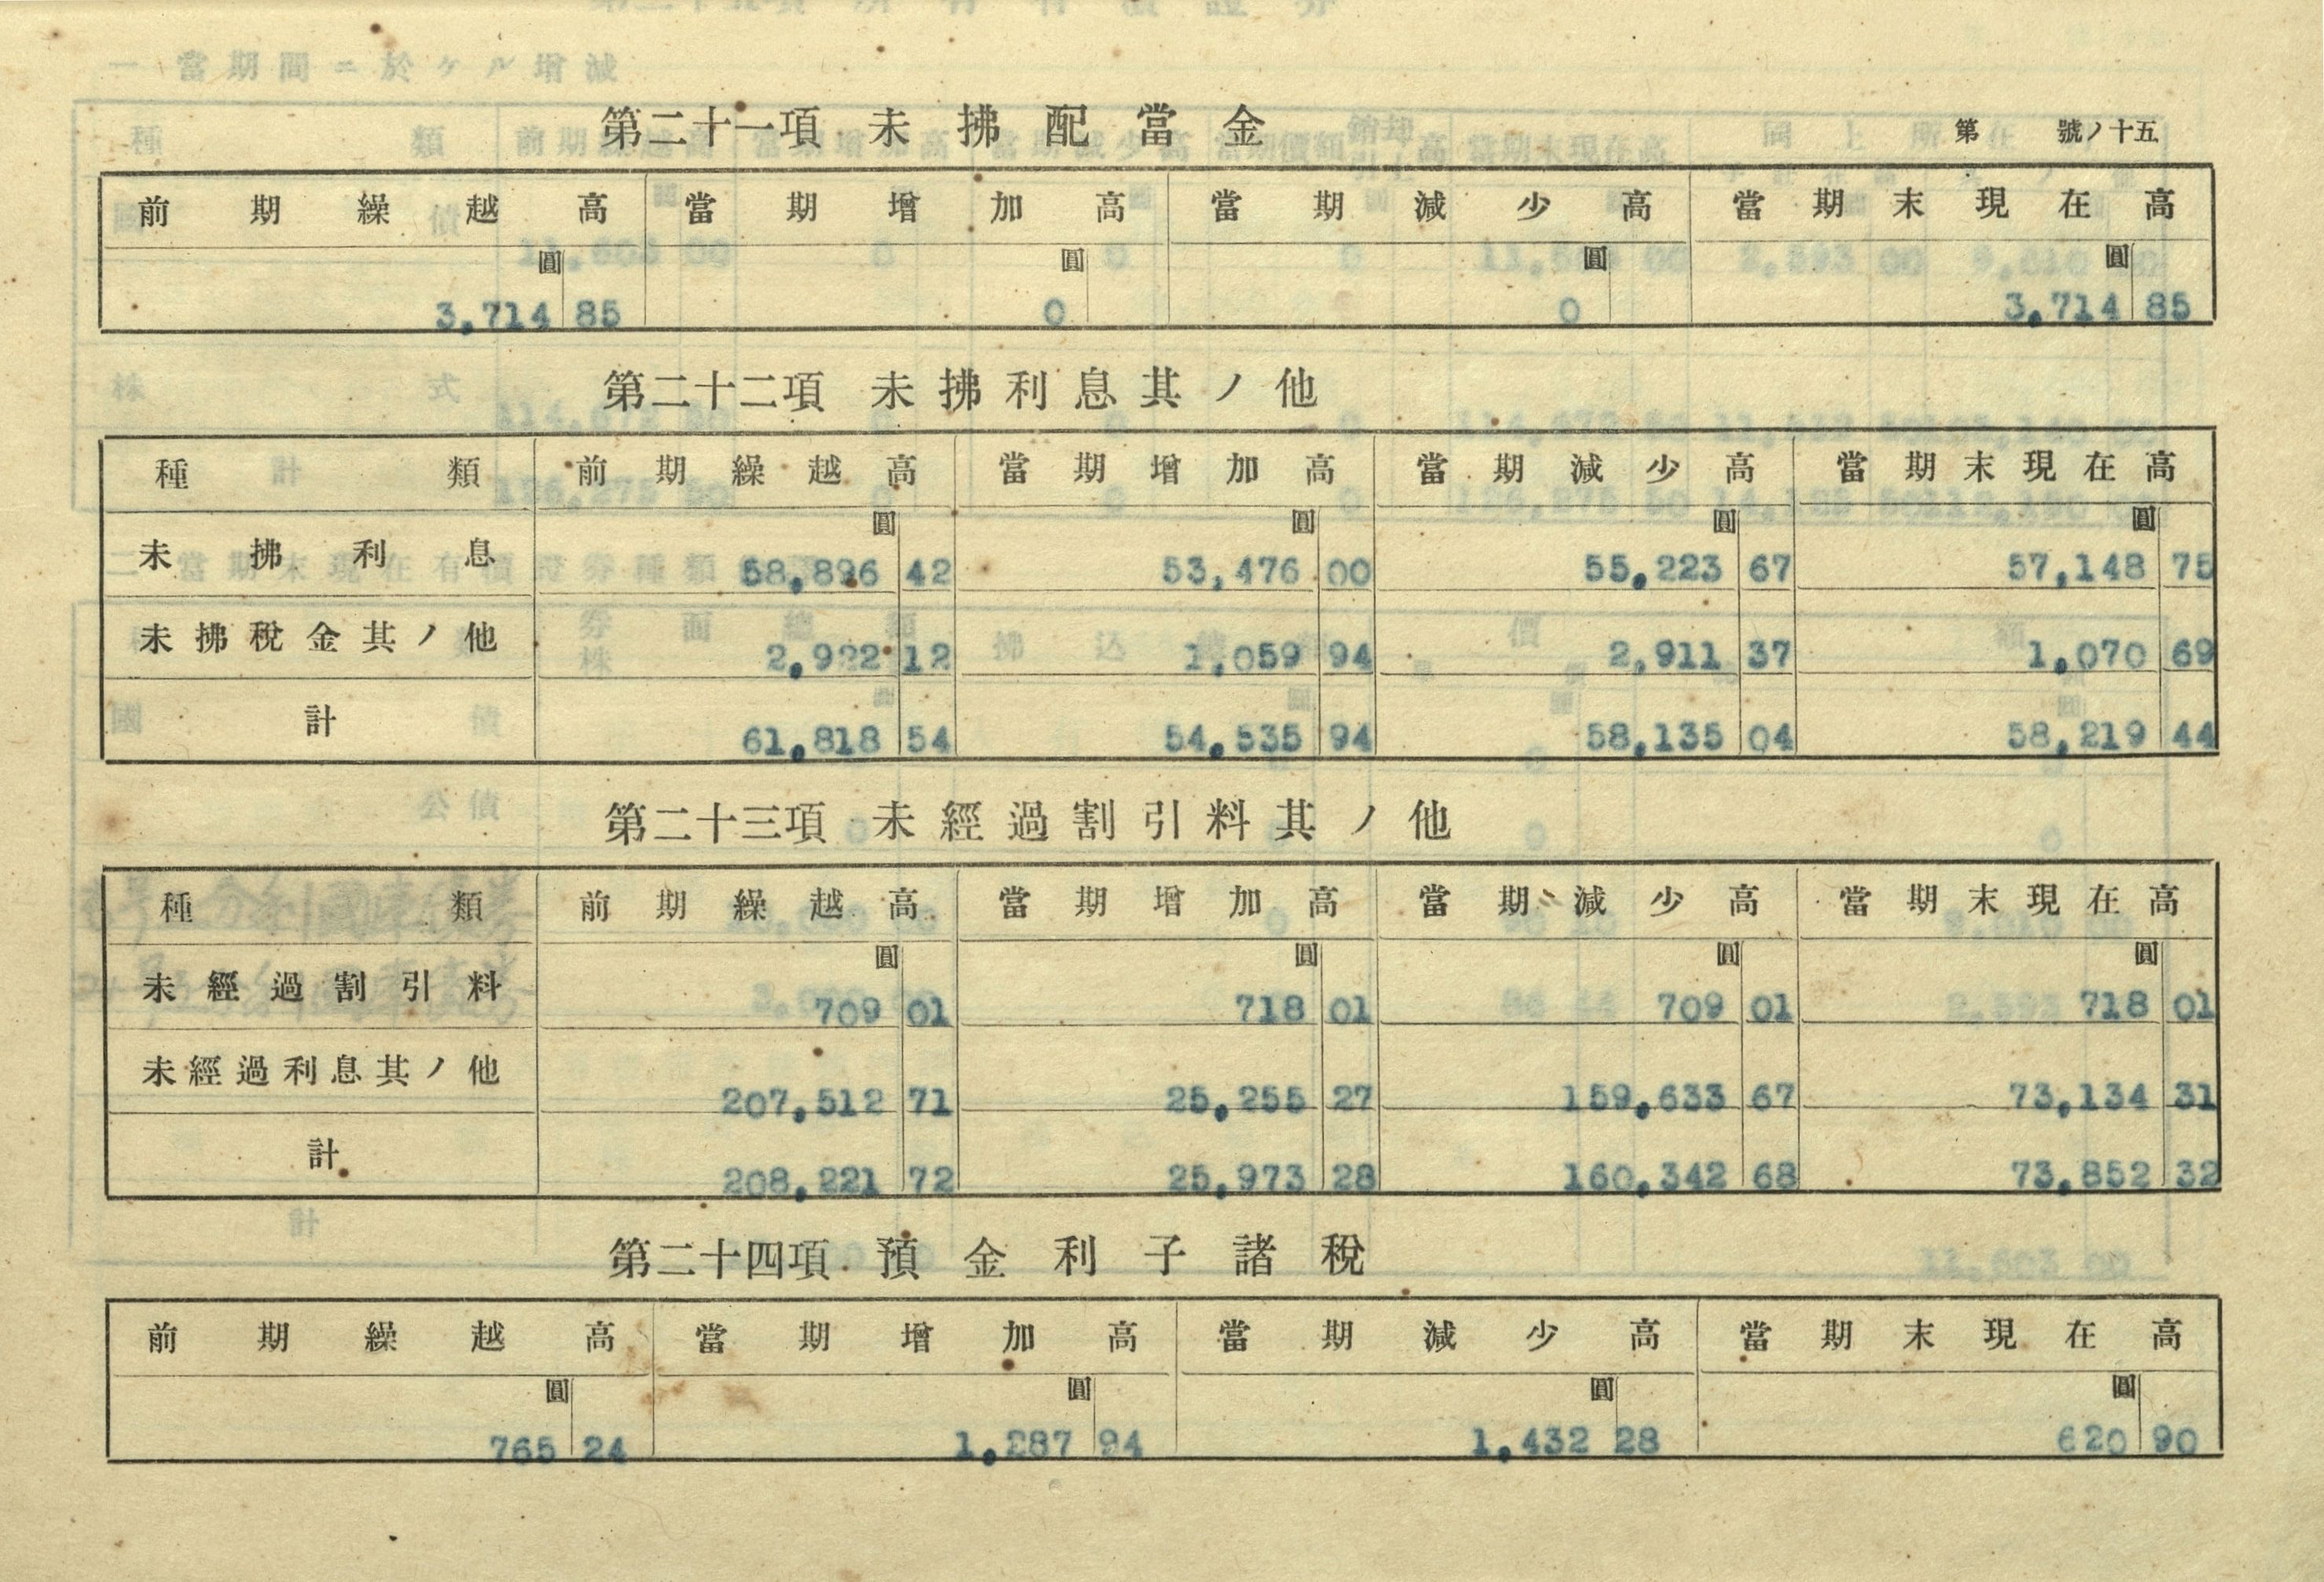 第二十一項 未拂配當金
第 號ノ十五
前期繰越高 當期增加高 當期減少高 當期末現在高
圓 圓 圓 圓
3,714 85 0 0 3,714 85
第二十二項 未拂利息其ノ他
種類 前期繰越高 當期增加高 當期減少高 當期末現在高
圓 圓 圓 圓
未拂利息 58,896 42 53,476 00 55,223 67 57,148 75
未拂稅金其ノ他 2,922 12 1,059 94 2,911 37 1,070 69
計 61,818 54 54,535 94 58,135 04 58,219 44
第二十三項 未經過割引料其ノ他
種類 前期繰越高 當期增加高 當期減少高 當期末現在高
圓 圓 圓 圓
未經過割引料 709 01 718 01 709 01 718 01
未經過利息其ノ他 207,512 71 25,255 27 159,633 67 73,134 31
計 208,221 72 25,973 28 160,342 68 73,852 32
第二十四項 預金利子諸稅
前期繰越高 當期增加高 當期減少高 當期末現在高
圓 圓 圓 圓
765 24 1,287 94 1,432 28 620 90